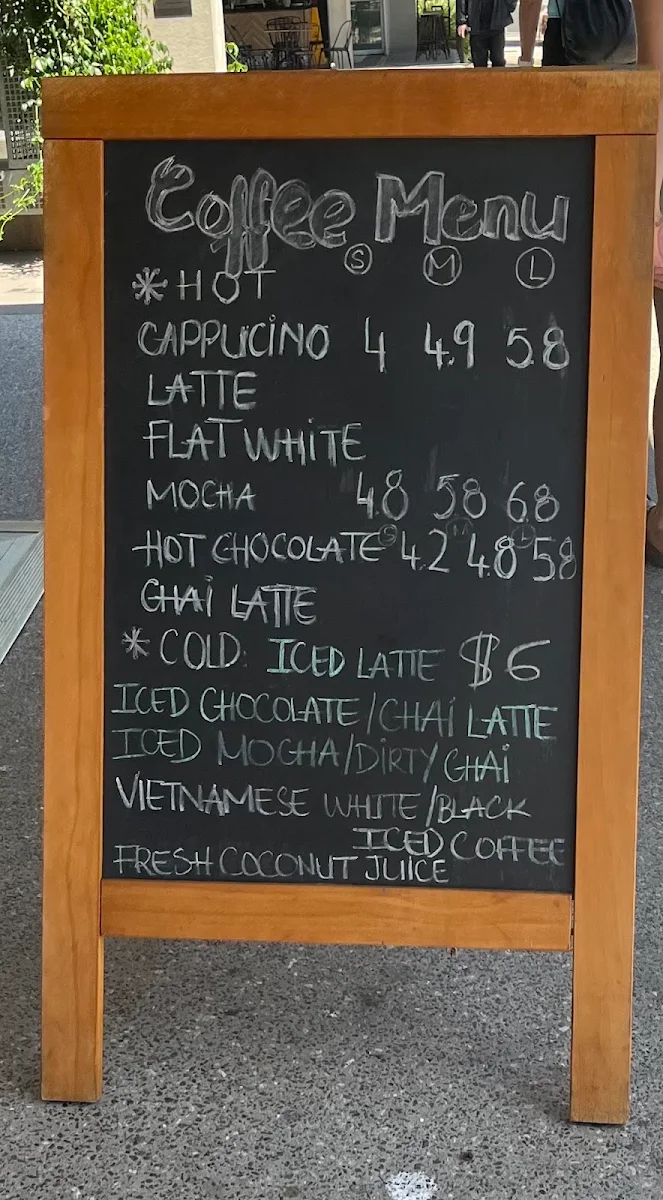 Coffee Menu
S M L
* HOT
CAPPUCINO 4 4.9 58
LATTE
FLAT WHITE
MOCHA 4.8 58 68
HOT CHOCOLATE S 4.2 M 4.8 L 58
CHAI LATTE
* COLD: ICED LATTE $6
ICED CHOCOLATE/CHAI LATTE
ICED MOCHA/DIRTY CHAI
VIETNAMESE WHITE/BLACK
ICED COFFEE
FRESH COCONUT JUIICE